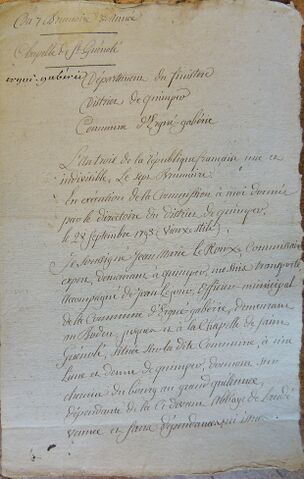 Du 7 Brumaire 3e Année
Chapelle de St Guénolé
ergué-gabéric
Département du finistere
District de quimper
Commune d'Ergué-gabéric
L'an trois de la république française une et
indivisible, Le sept Brumaire
En exécution de la Commission à moi donnée
par le directoire du district de quimper,
le 28 Septembre 1793 (vieux stile)
Je Soussigné Jean Marie Le Roux Commissaire
expert, demeurant à quimper, me suis transporté
accompagné de Jean Le jour, Officier municipal
de la Commune d'Ergué-gabéric, demeurant
au Boden, jusques et à la Chapelle de Saint
Guénolé, située sur la dite Commune, à une
lieue et demie de quimper, donnant sur
chemin du bourg au grand
dépendante de la Ci devant abbaye de Landé
vennec et sans dépendances qui